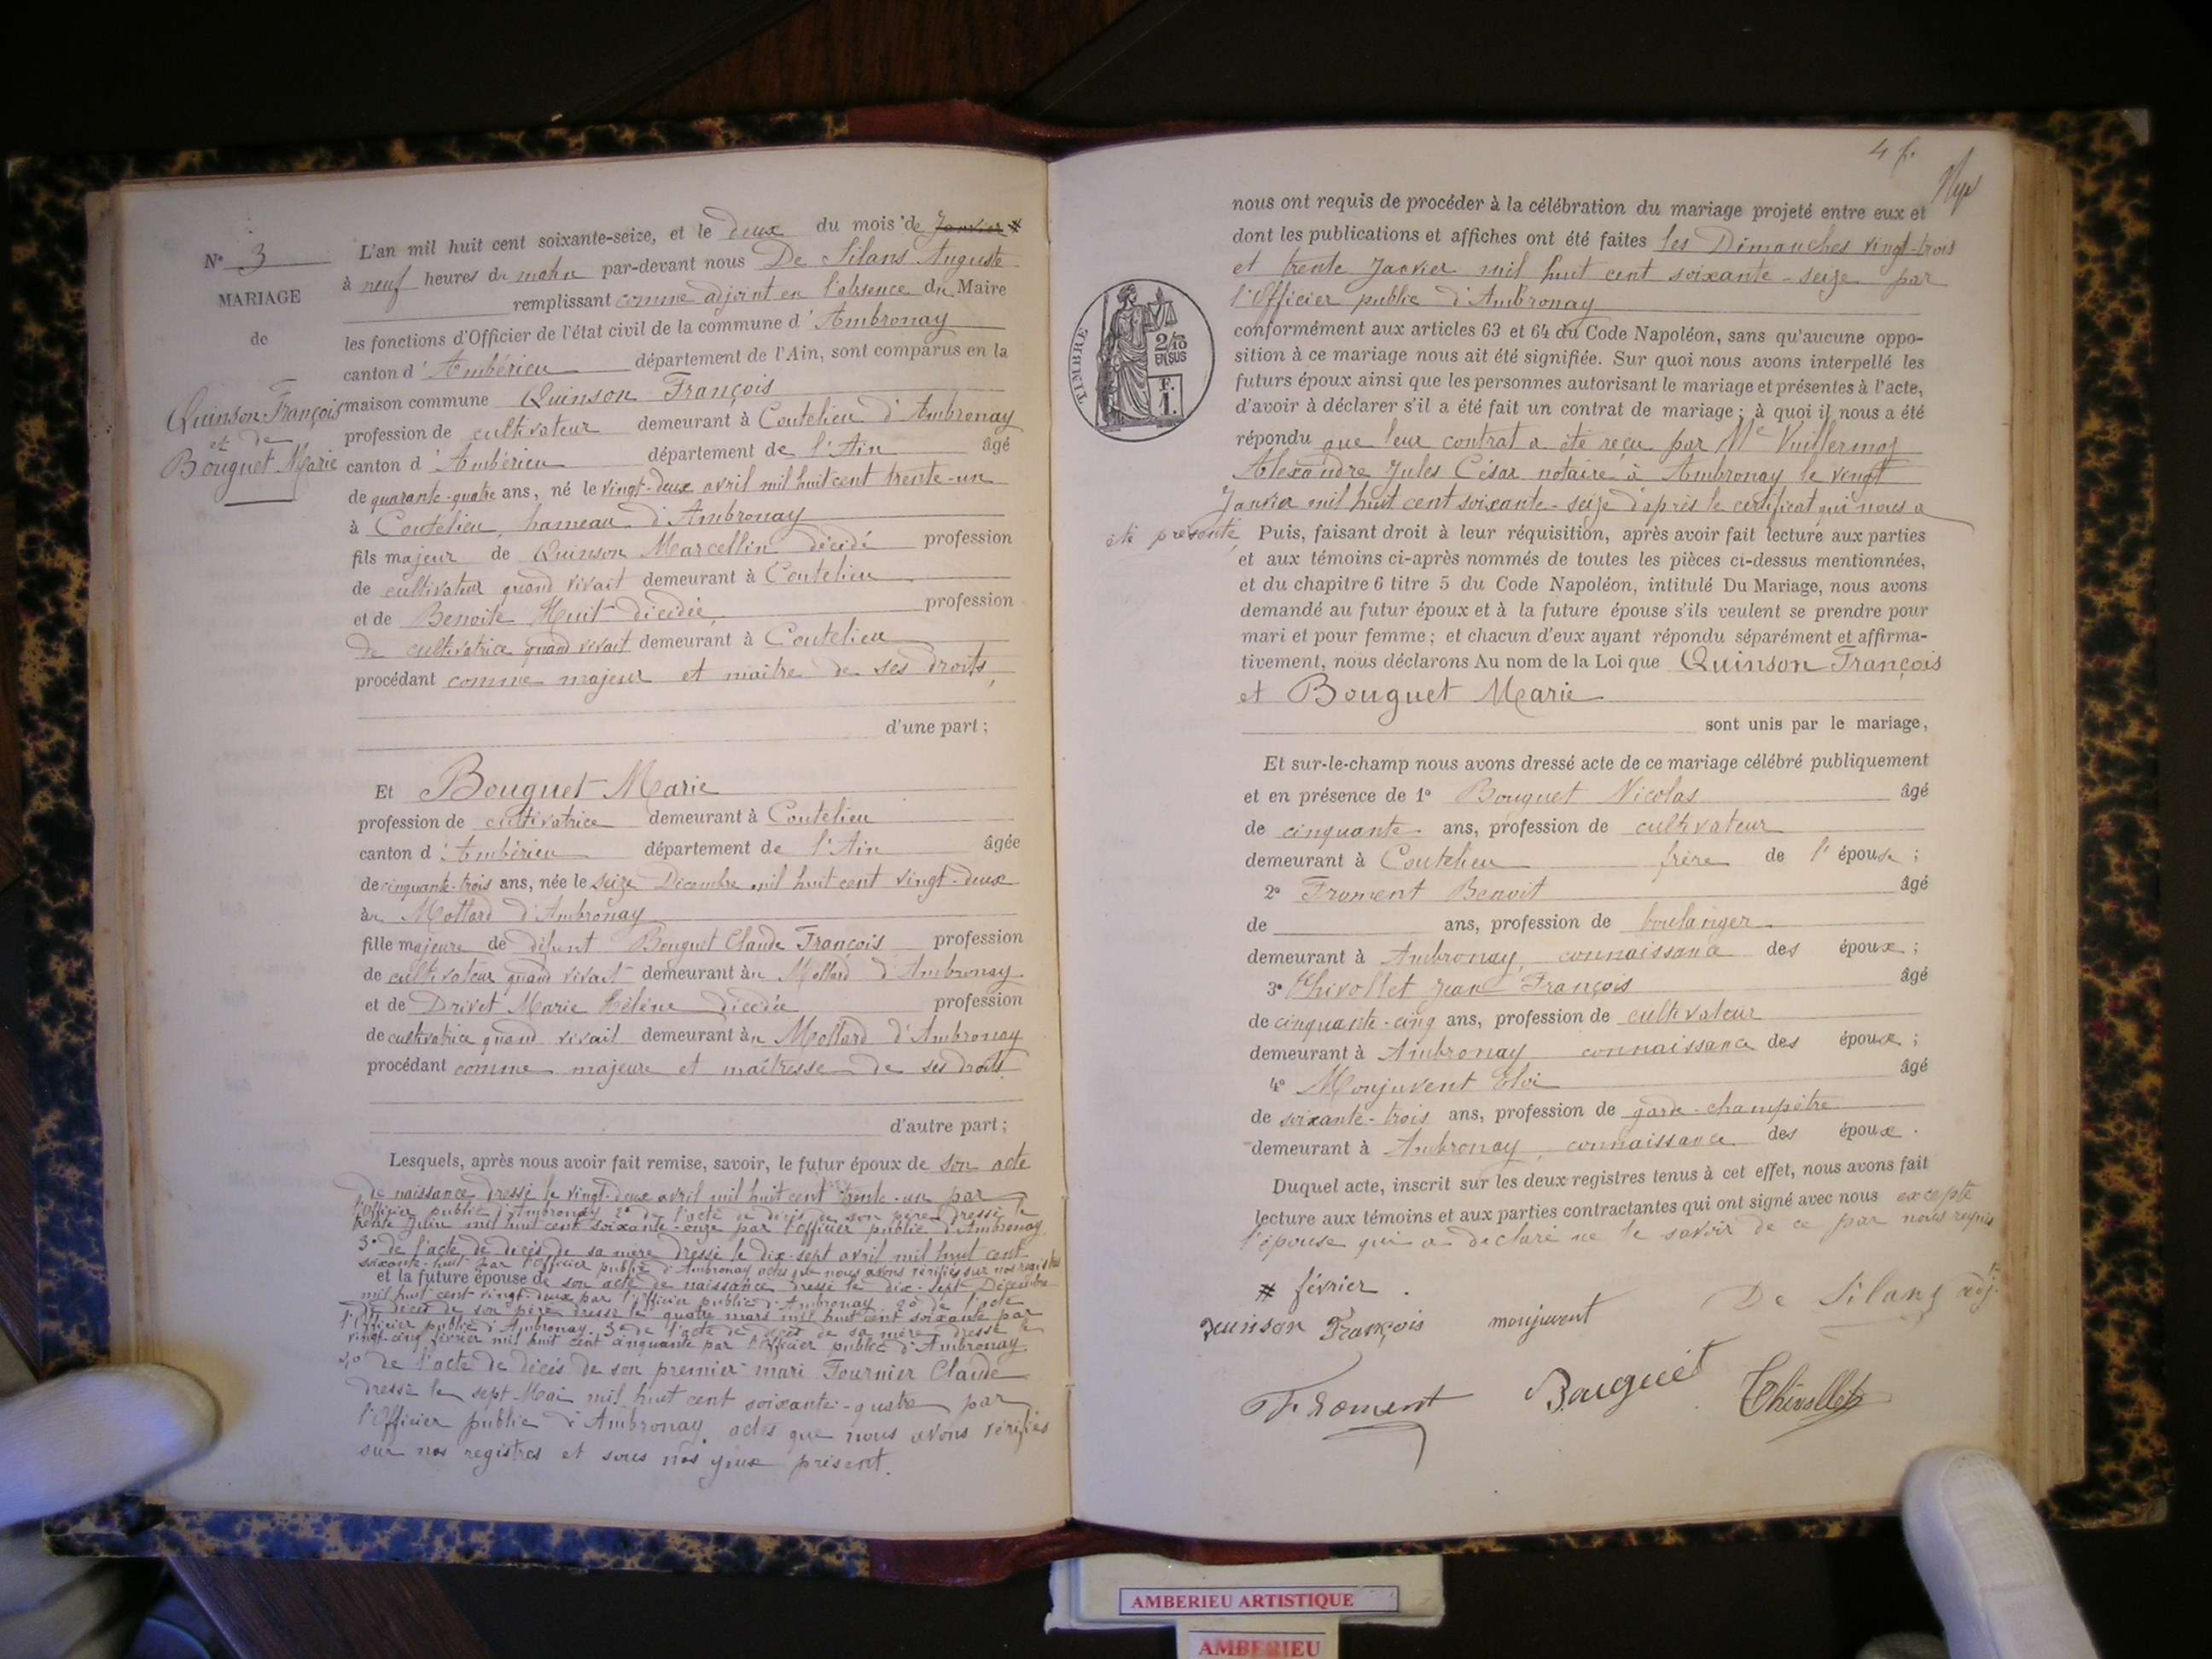 N° 3
MARIAGE
de
Quinson François
et de
Bouguet Marie
L'an mil huit cent soixante-seize, et le deux du mois de Janvier #
à neuf heures du matin par-devant nous De Silans Auguste
remplissant comme adjoint en l'absence du Maire
les fonctions d'Officier de l'état civil de la commune d'Ambronay
canton d'Ambérieu département de l'Ain, sont comparus en la
maison commune Quinson François
profession de cultivateur demeurant à Coutelieu d'Ambronay
canton d'Ambérieu département de l'Ain âgé
de quarante-quatre ans, né le vingt-deux avril mil huit cent trente-un
à Coutelieu, hameau d'Ambronay
fils majeur de Quinson Marcellin décédé profession
de cultivateur quand vivait demeurant à Coutelieu
et de Benoite Huit décédée, profession
de cultivatrice quand vivait demeurant à Coutelieu
procédant comme majeur et maître de ses droits,
d'une part ;
Et Bouguet Marie
profession de cultivatrice demeurant à Coutelieu
canton d'Ambérieu département de l'Ain âgée
de cinquante-trois ans, née le seize Décembre mil huit cent vingt-deux
au Mollard d'Ambronay
fille majeure de défunt Bouguet Claude François profession
de cultivateur quand vivait demeurant au Mollard d'Ambronay
et de Drivet Marie Hélène décédée profession
de cultivatrice quand vivait demeurant au Mollard d'Ambronay
procédant comme majeure et maîtresse de ses droits
d'autre part ;
Lesquels, après nous avoir fait remise, savoir, le futur époux de son acte
de naissance dressé le vingt-deux avril mil huit cent trente-un par
l'Officier public d'Ambronay 2° de l'acte de décès de son père dressé le
trente Juin mil huit cent soixante-onze par l'officier public d'Ambronay
3° de l'acte de décès de sa mère dressé le dix-sept avril mil huit cent
soixante-huit par l'officier public d'Ambronay actes que nous avons vérifiés sur nos registres
et la future épouse de son acte de naissance dressé le dix-sept Décembre
mil huit cent vingt-deux par l'officier public d'Ambronay 2° de l'acte
de décès de son père dressé le quatre mars mil huit cent soixante par
l'Officier public d'Ambronay 3° de l'acte de décès de sa mère dressé le
vingt-cinq février mil huit cent cinquante par l'Officier public d'Ambronay
4° de l'acte de décès de son premier mari Fournier Claude
dressé le sept Mai mil huit cent soixante-quatre par
l'Officier public d'Ambronay. actes que nous avons vérifiés
sur nos registres et sous nos yeux présent.
4 f.
nous ont requis de procéder à la célébration du mariage projeté entre eux et
dont les publications et affiches ont été faites les Dimanches vingt-trois
et trente Janvier mil huit cent soixante-seize par
l'Officier public d'Ambronay
TIMBRE
2/10
EN SUS
F.
1.
conformément aux articles 63 et 64 du Code Napoléon, sans qu'aucune oppo-
sition à ce mariage nous ait été signifiée. Sur quoi nous avons interpellé les
futurs époux ainsi que les personnes autorisant le mariage et présentes à l'acte,
d'avoir à déclarer s'il a été fait un contrat de mariage ; à quoi il nous a été
répondu que leur contrat a été reçu par Me Vuillermoz
Alexandre Jules César notaire à Ambronay le vingt
Janvier mil huit cent soixante-seize d'après le certificat qui nous a
été présenté, Puis, faisant droit à leur réquisition, après avoir fait lecture aux parties
et aux témoins ci-après nommés de toutes les pièces ci-dessus mentionnées,
et du chapitre 6 titre 5 du Code Napoléon, intitulé Du Mariage, nous avons
demandé au futur époux et à la future épouse s'ils veulent se prendre pour
mari et pour femme ; et chacun d'eux ayant répondu séparément et affirma-
tivement, nous déclarons Au nom de la Loi que Quinson François
et Bouguet Marie
sont unis par le mariage,
Et sur-le-champ nous avons dressé acte de ce mariage célébré publiquement
et en présence de 1° Bouguet Nicolas âgé
de cinquante ans, profession de cultivateur
demeurant à Coutelieu frère de l'épouse ;
2° Froment Benoit âgé
de ans, profession de boulanger
demeurant à Ambronay, connaissance des époux ;
3° Thivollet Jean François âgé
de cinquante-cinq ans, profession de cultivateur
demeurant à Ambronay connaissance des époux ;
4° Monjuvent Eloi âgé
de soixante-trois ans, profession de garde-champêtre
demeurant à Ambronay, connaissance des époux.
Duquel acte, inscrit sur les deux registres tenus à cet effet, nous avons fait
lecture aux témoins et aux parties contractantes qui ont signé avec nous excepté
l'épouse qui a déclaré ne le savoir de ce par nous requis
# février.
quinson François monjuvent De Silans adj.t
Froment Bouguet Thivollet
AMBERIEU ARTISTIQUE
AMBERIEU